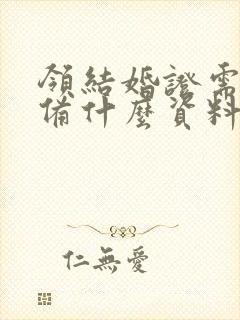 領結婚證需
備什麼資料
仁無愛